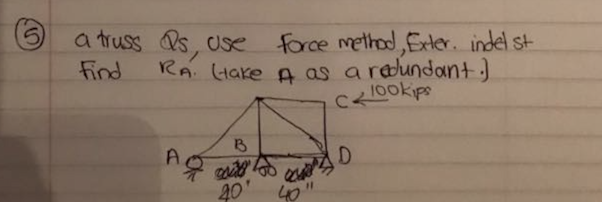 ⑤ a truss Qs, use Force method, Exter. indel st
find RA. (take A as a redundant.)
C ← 100kips
A B D
20' 40"